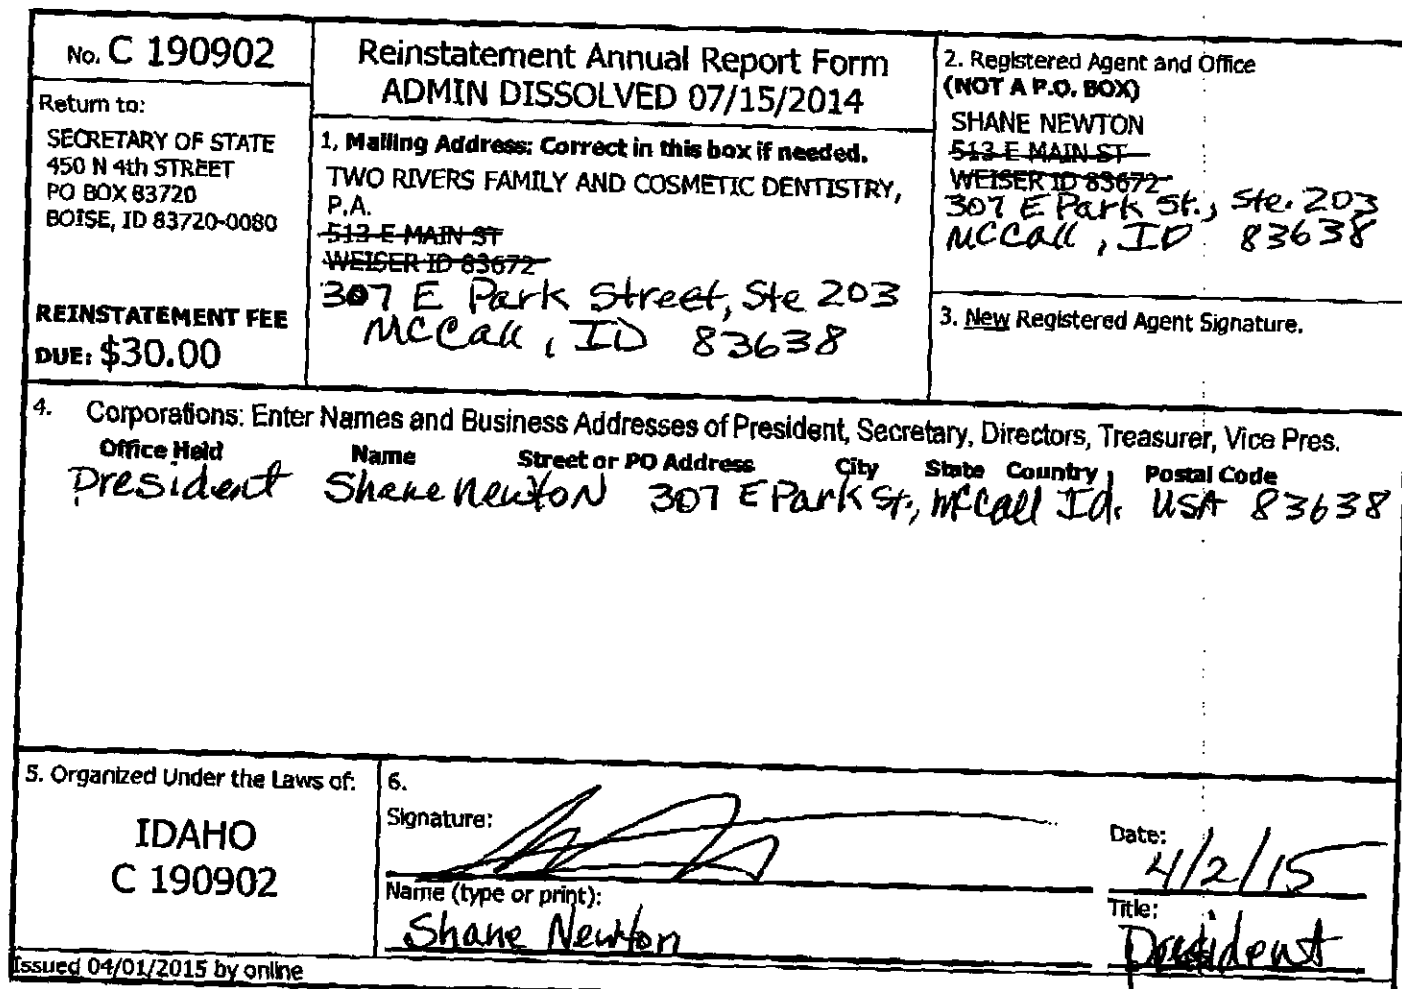 No. C 190902
Return to:
SECRETARY OF STATE
450 N 4th STREET
PO BOX 83720
BOISE, ID 83720-0080
REINSTATEMENT FEE
DUE: $30.00
Reinstatement Annual Report Form
ADMIN DISSOLVED 07/15/2014
1. Mailing Address: Correct in this box if needed.
TWO RIVERS FAMILY AND COSMETIC DENTISTRY,
P.A.
513 E MAIN ST
WEISER ID 83672
307 E Park Street, Ste 203
McCall, ID 83638
2. Registered Agent and Office
(NOT A P.O. BOX)
SHANE NEWTON
513 E MAIN ST
WEISER ID 83672
307 E Park St., Ste. 203
McCall, ID 83638
3. New Registered Agent Signature.
4. Corporations: Enter Names and Business Addresses of President, Secretary, Directors, Treasurer, Vice Pres.
Office Held Name Street or PO Address City State Country Postal Code
President Shane Newton 307 E Park St., McCall Id. USA 83638
5. Organized Under the Laws of:
IDAHO
C 190902
6.
Signature:
Date:
4/2/15
Name (type or print):
Shane Newton
Title:
President
Issued 04/01/2015 by online